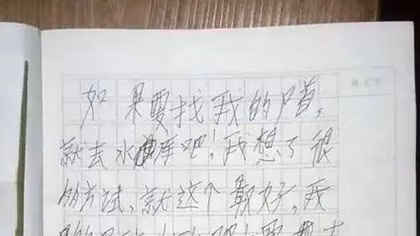 如果要找我的尸首,
就去水库吧!我想了很
多方试,就这个最好,我